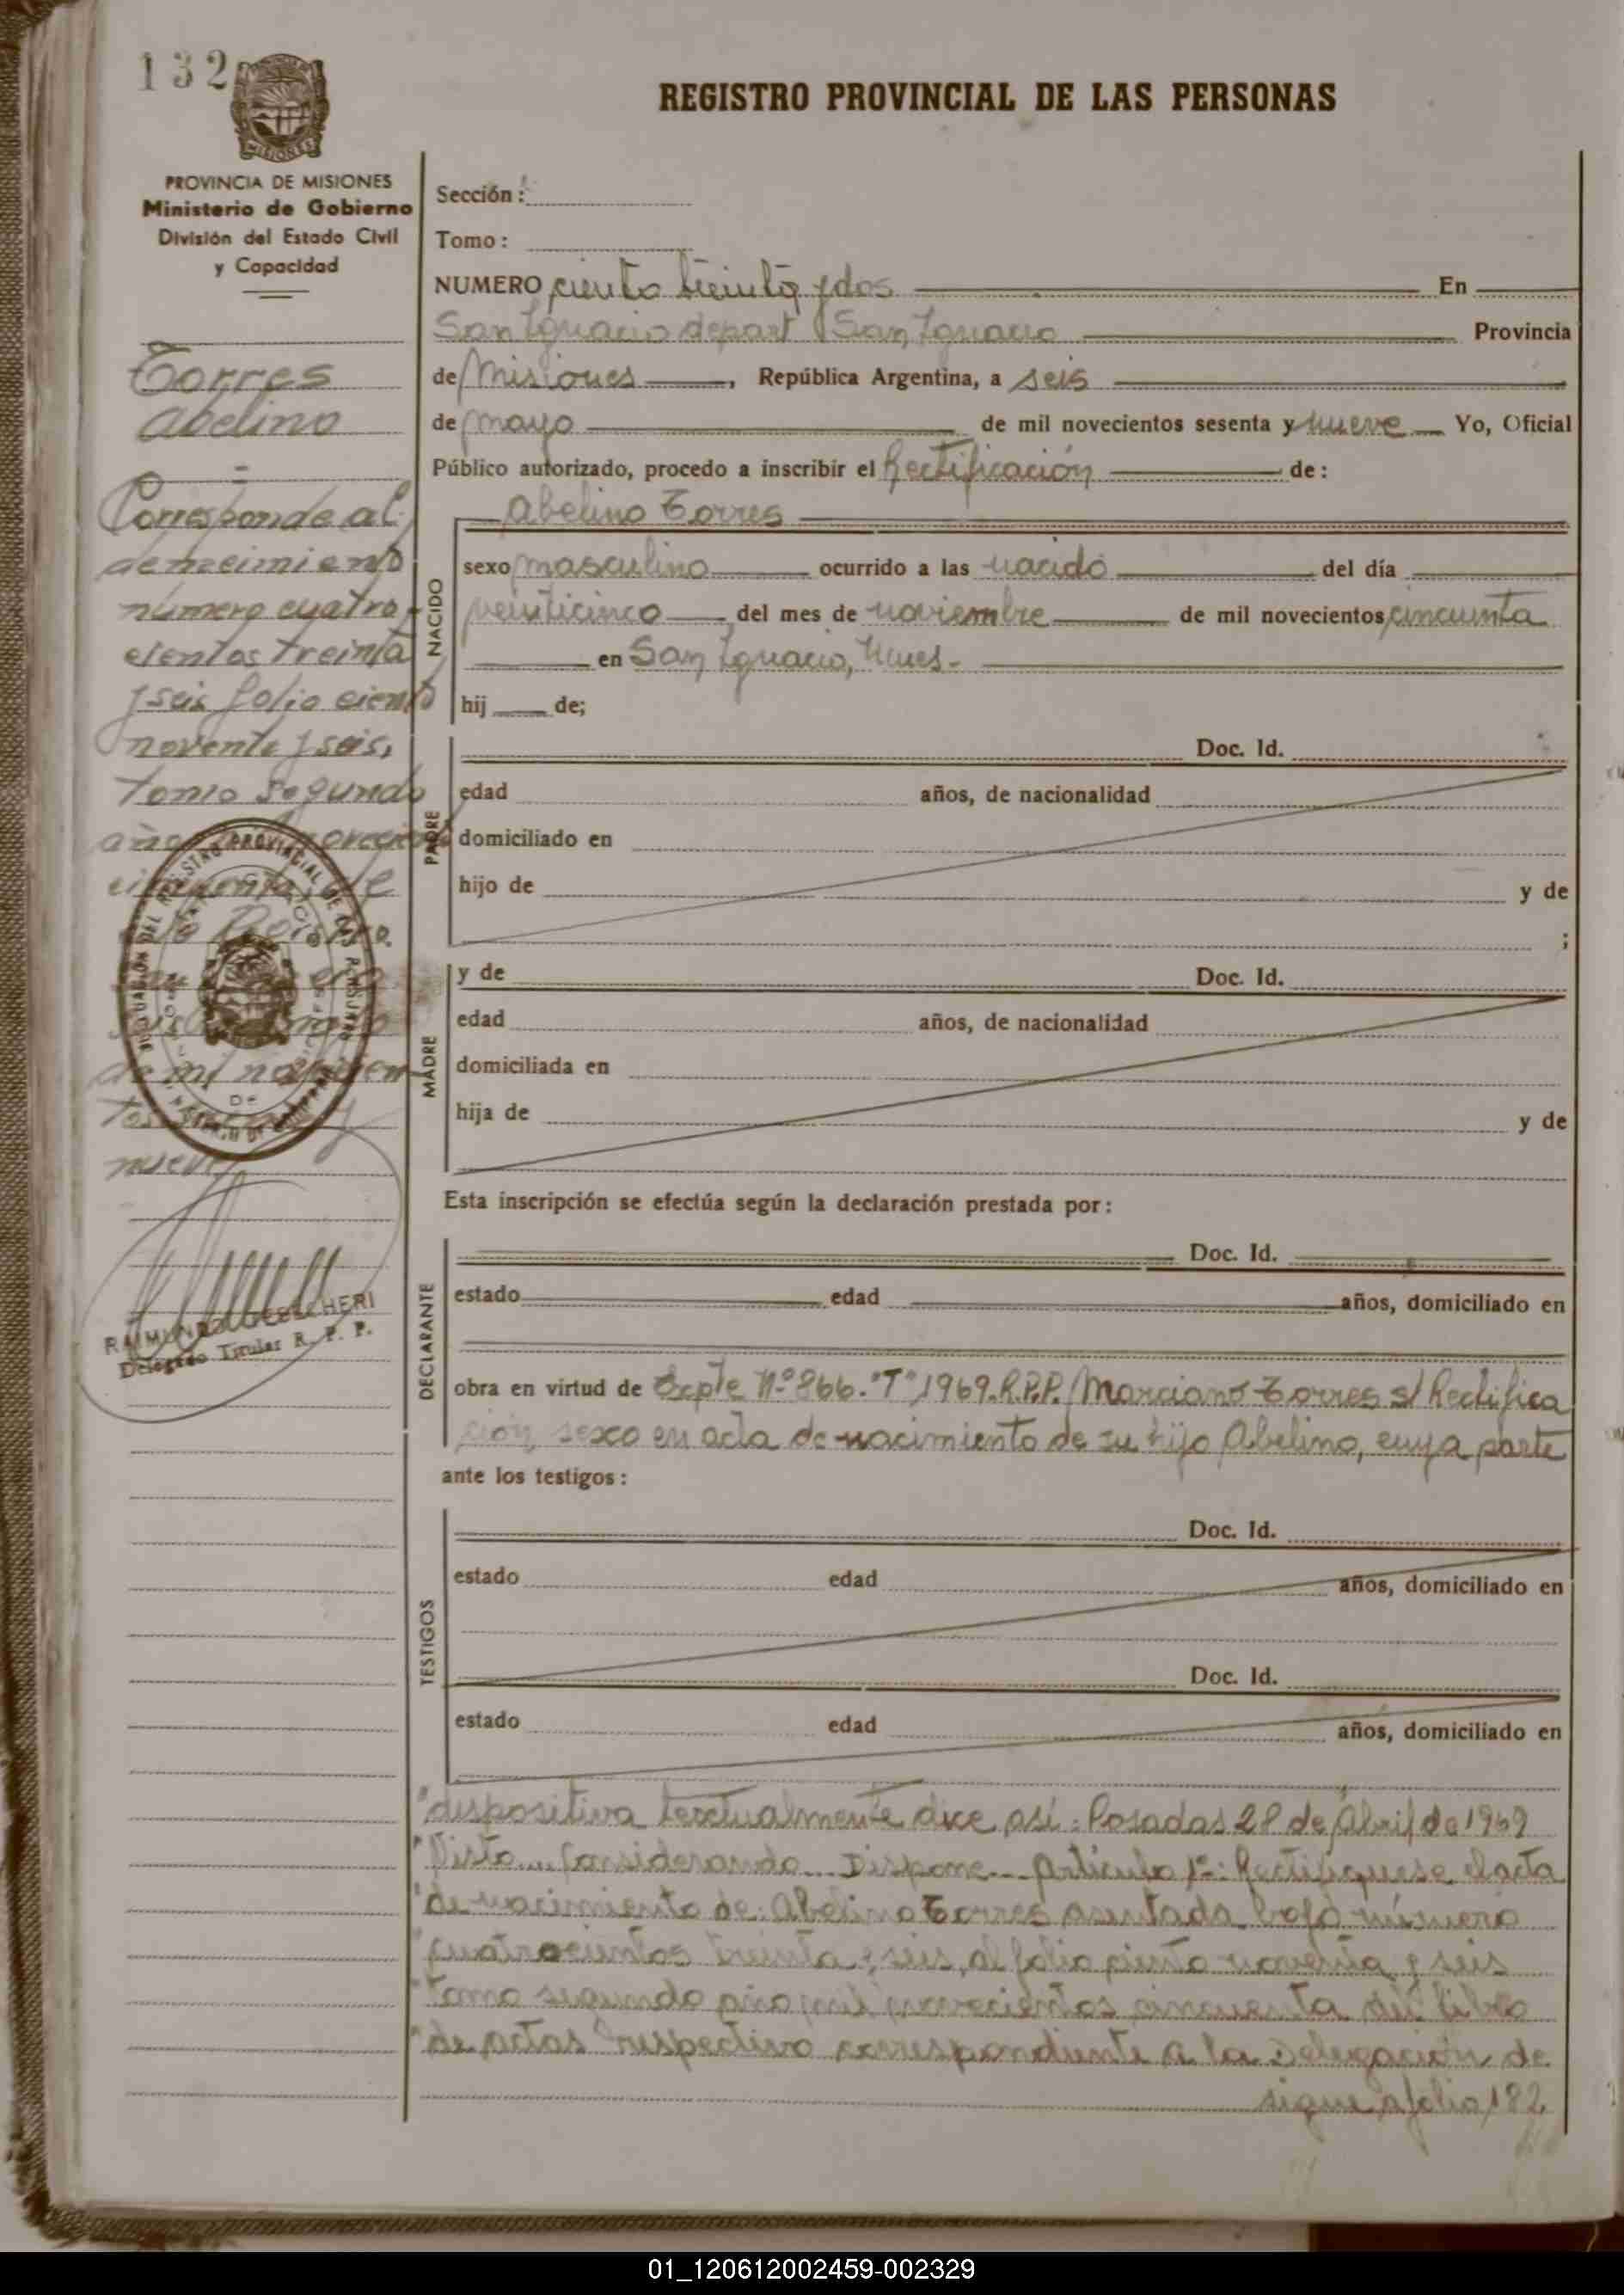 132
MISIONES
PROVINCIA DE MISIONES
Ministerio de Gobierno
División del Estado Civil
y Capacidad
Torres
Abelino
Corresponde al
nacimiento
número cuatro
cientos treinta
y seis folio ciento
noventa y seis,
tomo segundo
año
cincuenta, de
de mil novecien
tos y
nueve
RAIMUNDO
Delegado Titular R. P. P.
REGISTRO PROVINCIAL DE LAS PERSONAS
Sección:
Tomo:
NUMERO ciento treinta y dos En
San Ignacio depart San Ignacio Provincia
de Misiones, República Argentina, a seis
de mayo de mil novecientos sesenta y nueve Yo, Oficial
Público autorizado, procedo a inscribir el Rectificación de:
Abelino Torres
NACIDO
sexo masculino ocurrido a las nacido del día
veinticinco del mes de noviembre de mil novecientos cincuenta
en San Ignacio, Mnes.
hij de;
PADRE
Doc. Id.
edad años, de nacionalidad
domiciliado en
hijo de y de
;
MADRE
y de Doc. Id.
edad años, de nacionalidad
domiciliada en
hija de y de
Esta inscripción se efectúa según la declaración prestada por:
DECLARANTE
Doc. Id.
estado edad años, domiciliado en
obra en virtud de Expte Nº 866."T"1969.R.P.P. Marciano Torres s/ Rectifica
ción sexo en acta de nacimiento de su hijo Abelino, cuya parte
ante los testigos:
TESTIGOS
Doc. Id.
estado edad años, domiciliado en
Doc. Id.
estado edad años, domiciliado en
"dispositiva textualmente dice así: Posadas 28 de Abril de 1969
"Visto... Considerando... Dispone... Artículo 1º: Rectifíquese el acta
"de nacimiento de: Abelino Torres asentada bajo número
"cuatrocientos treinta y seis, al folio ciento noventa y seis
"tomo segundo año mil novecientos cincuenta del libro
"de actas respectivo correspondiente a la Delegación de
sigue a folio 182
01_120612002459-002329